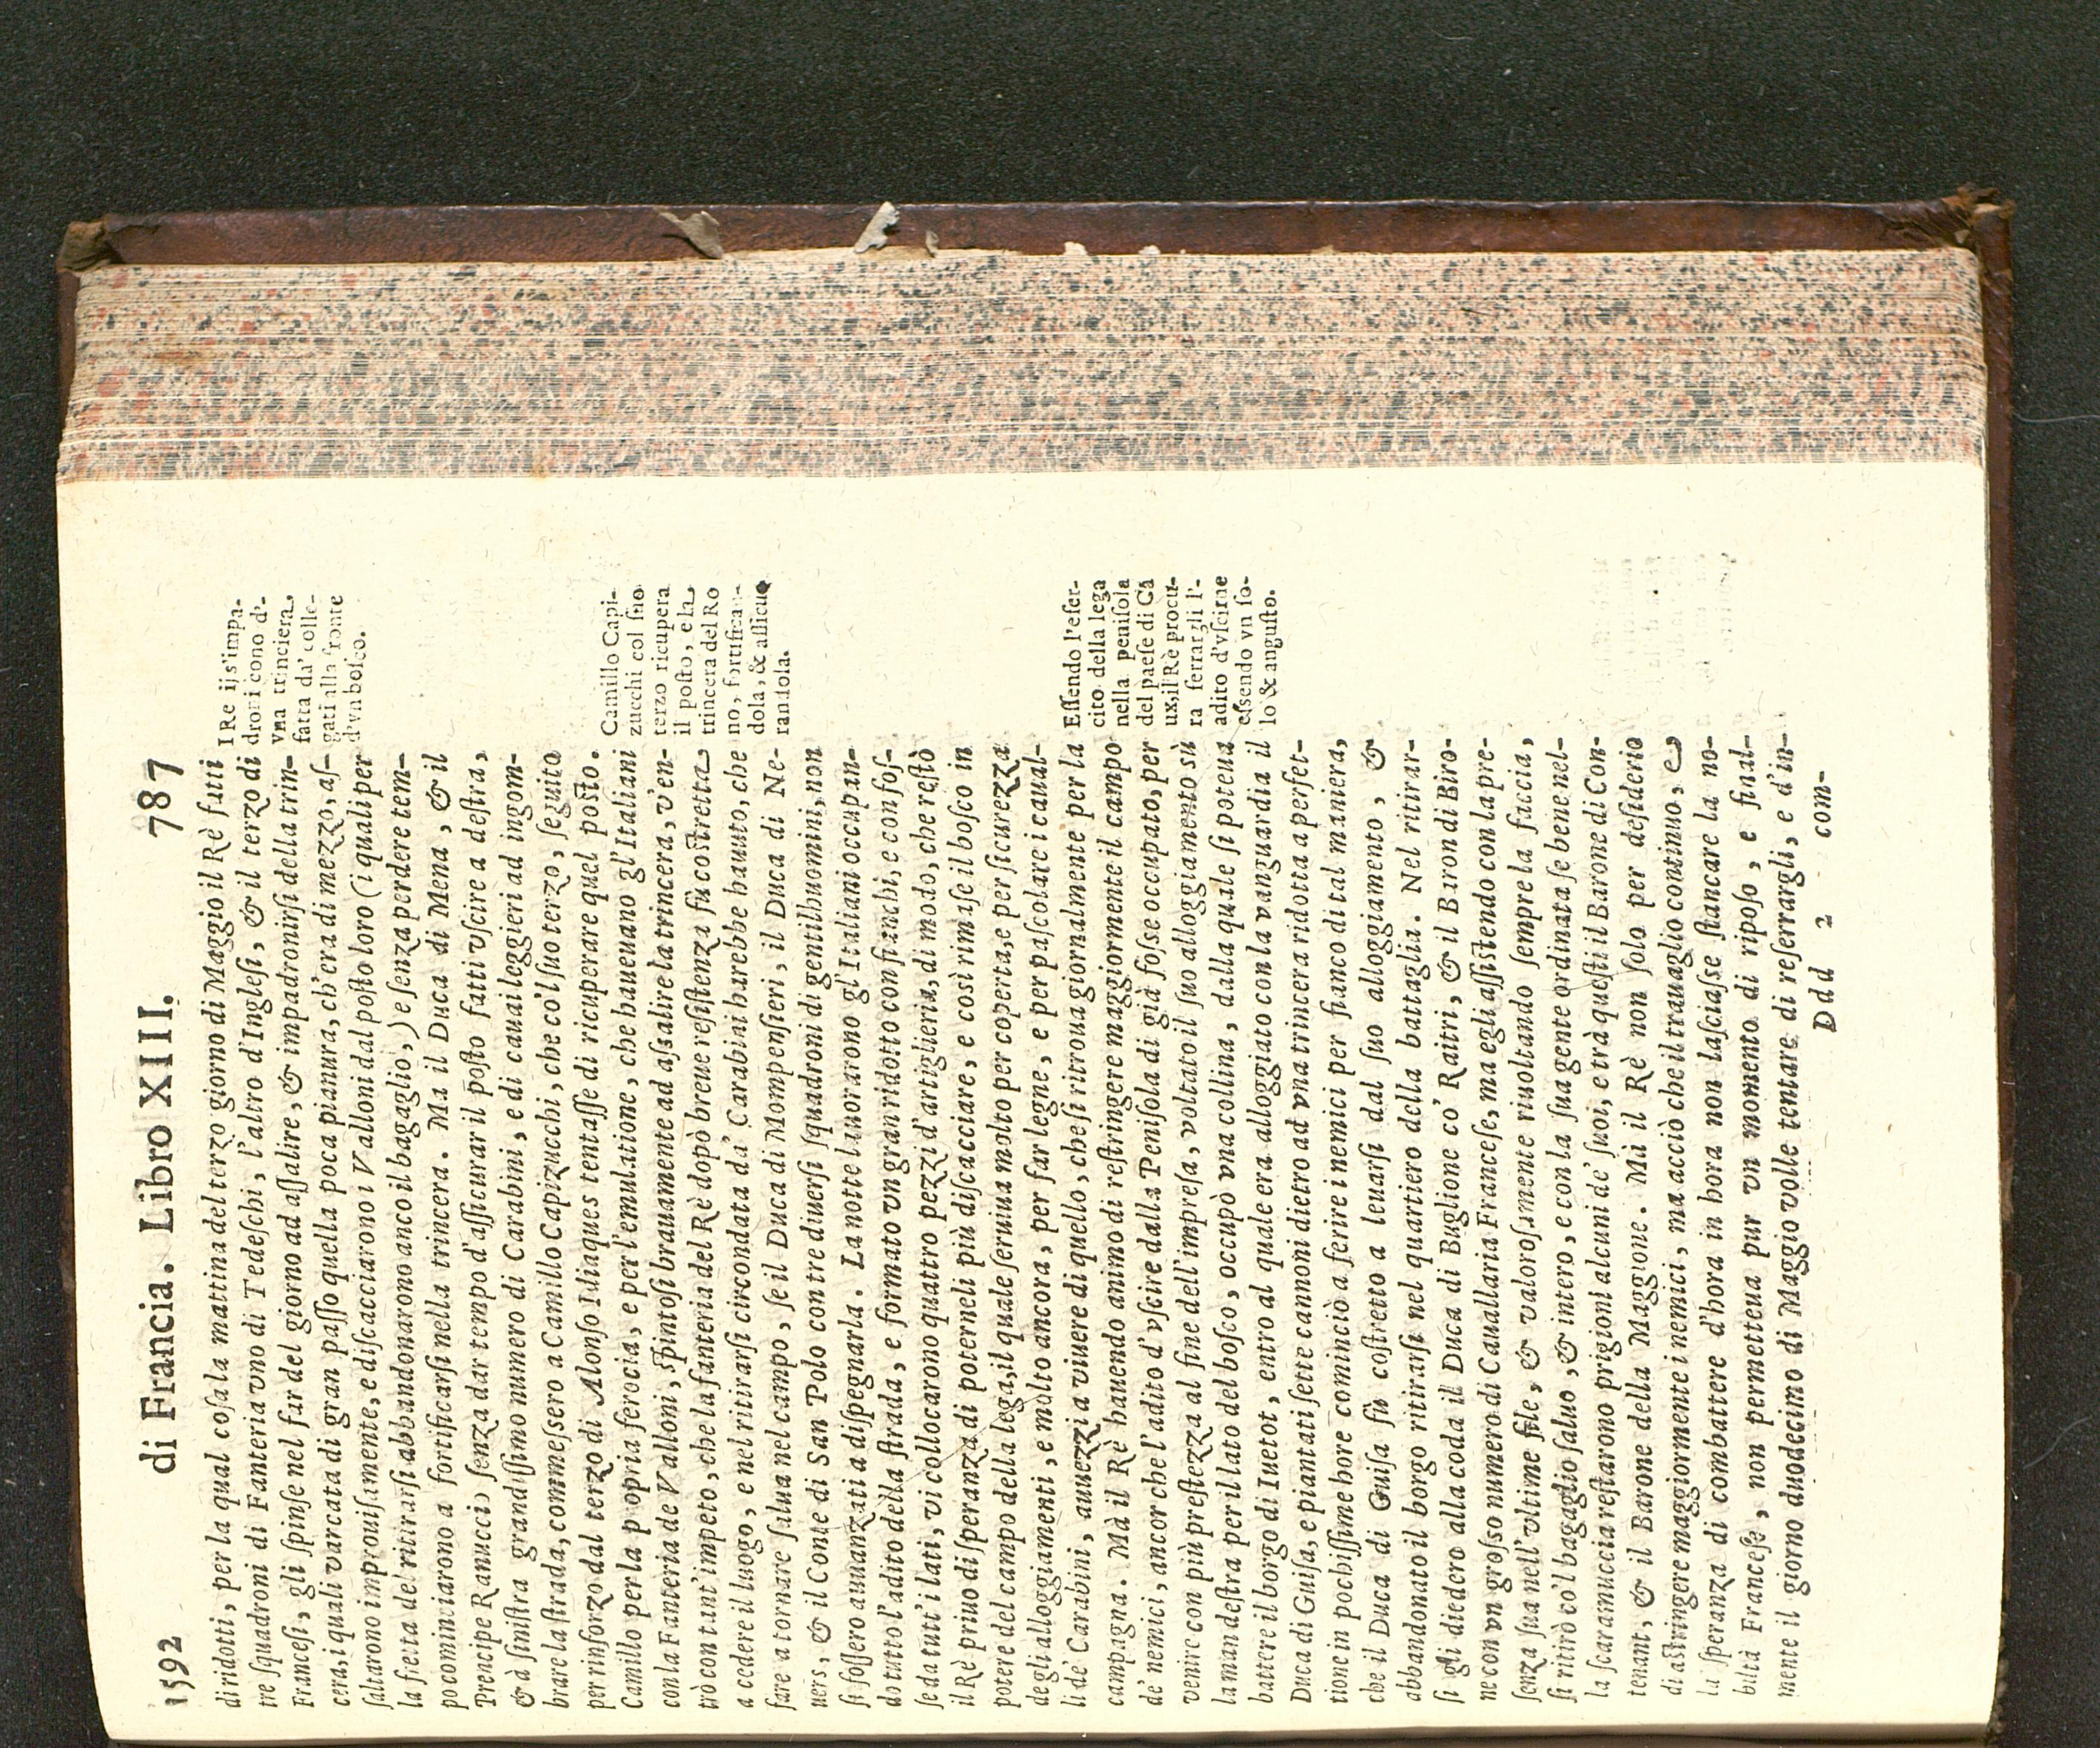 1592 di Francia. Libro XIII. 787
di ridotti, per la qual coſa la mattina del terzo giorno di Maggio il Rè fatti
tre ſquadroni di Fanteria vno di Tedeſchi, l'altro d'Ingleſi, & il terzo di
Franceſi, gli ſpinſe nel far del giorno ad aſſalire, & impadronirſi della trin-
cera, i quali varcata di gran paſſo quella poca pianura, ch'era di mezzo, aſ-
ſaltarono improuiſamente, e diſcacciarono i Valloni dal poſto loro (i quali per
la fretta del ritirarſi abbandonarono anco il bagaglio,) e ſenza perdere tem-
po cominciarono a fortificarſi nella trincera. Ma il Duca di Mena, & il
Prencipe Ranuccio ſenza dar tempo d'aſſicurar il poſto fatti vſcire a deſtra,
& à ſiniſtra grandiſſimo numero di Carabini, e di cauai leggieri ad ingom-
brare la ſtrada, commeſsero a Camillo Capizucchi, che co'l ſuo terzo, ſeguito
per rinforzo dal terzo di Alonſo Idiaques tentaſſe di ricuperare quel poſto.
Camillo per la propria ferocia, e per l'emulatione, che haueuano gl'Italiani
con la Fanteria de Valloni, ſpintoſi brauamente ad aſsalire la trincera, v'en-
trò con tant'impeto, che la fanteria del Rè dopò breue reſiſtenza fù coſtretta
a cedere il luogo, e nel ritirarſi circondata da' Carabini harebbe hauuto, che
fare a tornare ſalua nel campo, ſe il Duca di Mompenſieri, il Duca di Ne-
uers, & il Conte di San Polo con tre diuerſi ſquadroni di gentilhuomini, non
ſi foſſero auuanzati a diſpegnarla. La notte lauorarono gl'Italiani occupan-
do tutto l'adito della ſtrada, e formato vn gran ridotto con fianchi, e con foſ-
ſe da tutt'i lati, vi collocarono quattro pezzi d'artiglieria, di modo, che reſtò
il Rè priuo di ſperanza di poterneli più diſcacciare, e così rimiſe il boſco in
potere del campo della lega, il quale ſeruiua molto per coperta, e per ſicurezza
degli alloggiamenti, e molto ancora, per far legne, e per paſcolare i caual-
li de' Carabini, auuezzi a viuere di quello, che ſi ritroua giornalmente per la
campagna. Mà il Rè hauendo animo di reſtringere maggiormente il campo
de' nemici, ancor che l'adito d'vſcire dalla Peniſola di già foſse occupato, per
venire con più preſtezza al fine dell'impreſa, voltato il ſuo alloggiamento sù
la man deſtra per il lato del boſco, occupò vna collina, dalla quale ſi poteua
battere il borgo di Iuetot, entro al quale era alloggiato con la vanguardia il
Duca di Guiſa, e piantati ſette cannoni dietro ad vna trincera ridotta a perfet-
tione in pochiſſime hore cominciò a ferire i nemici per fianco di tal maniera,
che il Duca di Guiſa fù coſtretto a leuarſi dal ſuo alloggiamento, &
abbandonato il borgo ritirarſi nel quartiero della battaglia. Nel ritirar-
ſi gli diedero alla coda il Duca di Buglione co' Raitri, & il Baron di Biro-
ne con vn groſso numero di Cauallaria Franceſe, ma egli aſſiſtendo con la pre-
ſenza ſua nell'vltime file, & valoroſamente riuoltando ſempre la faccia,
ſi ritirò co'l bagaglio ſaluo, & intero, e con la ſua gente ordinata ſe bene nel-
la ſcaramuccia reſtarono prigioni alcuni de' ſuoi, e trà queſti il Barone di Con-
tenant, & il Barone della Maggione. Mà il Rè non ſolo per deſiderio
di aſtringere maggiormente i nemici, ma acciò che il trauaglio continuo, e
la ſperanza di combattere d'hora in hora non laſciaſse ſtancare la no-
biltà Franceſe, non permetteua pur vn momento di ripoſo, e final-
mente il giorno duodecimo di Maggio volle tentare di reſerrargli, e d'in-
Ddd 2 com-
I Re ijs'impa-
droniſcono d'-
vna trinciera,
fatta da' colle-
gati alla fronte
d'vn boſco.
Camillo Capi-
zucchi col ſuo
terzo ricupera
il poſto, e la
trincera del Ro
no, fortifican-
dola, & aſſicu
randola.
Eſſendo l'eſer-
cito della lega
nella peniſola
del paeſe di Cà
ux, il Rè procu-
ra ſerrargli l'-
adito d'vſcirne
eſsendo vn ſo-
lo & anguſto.